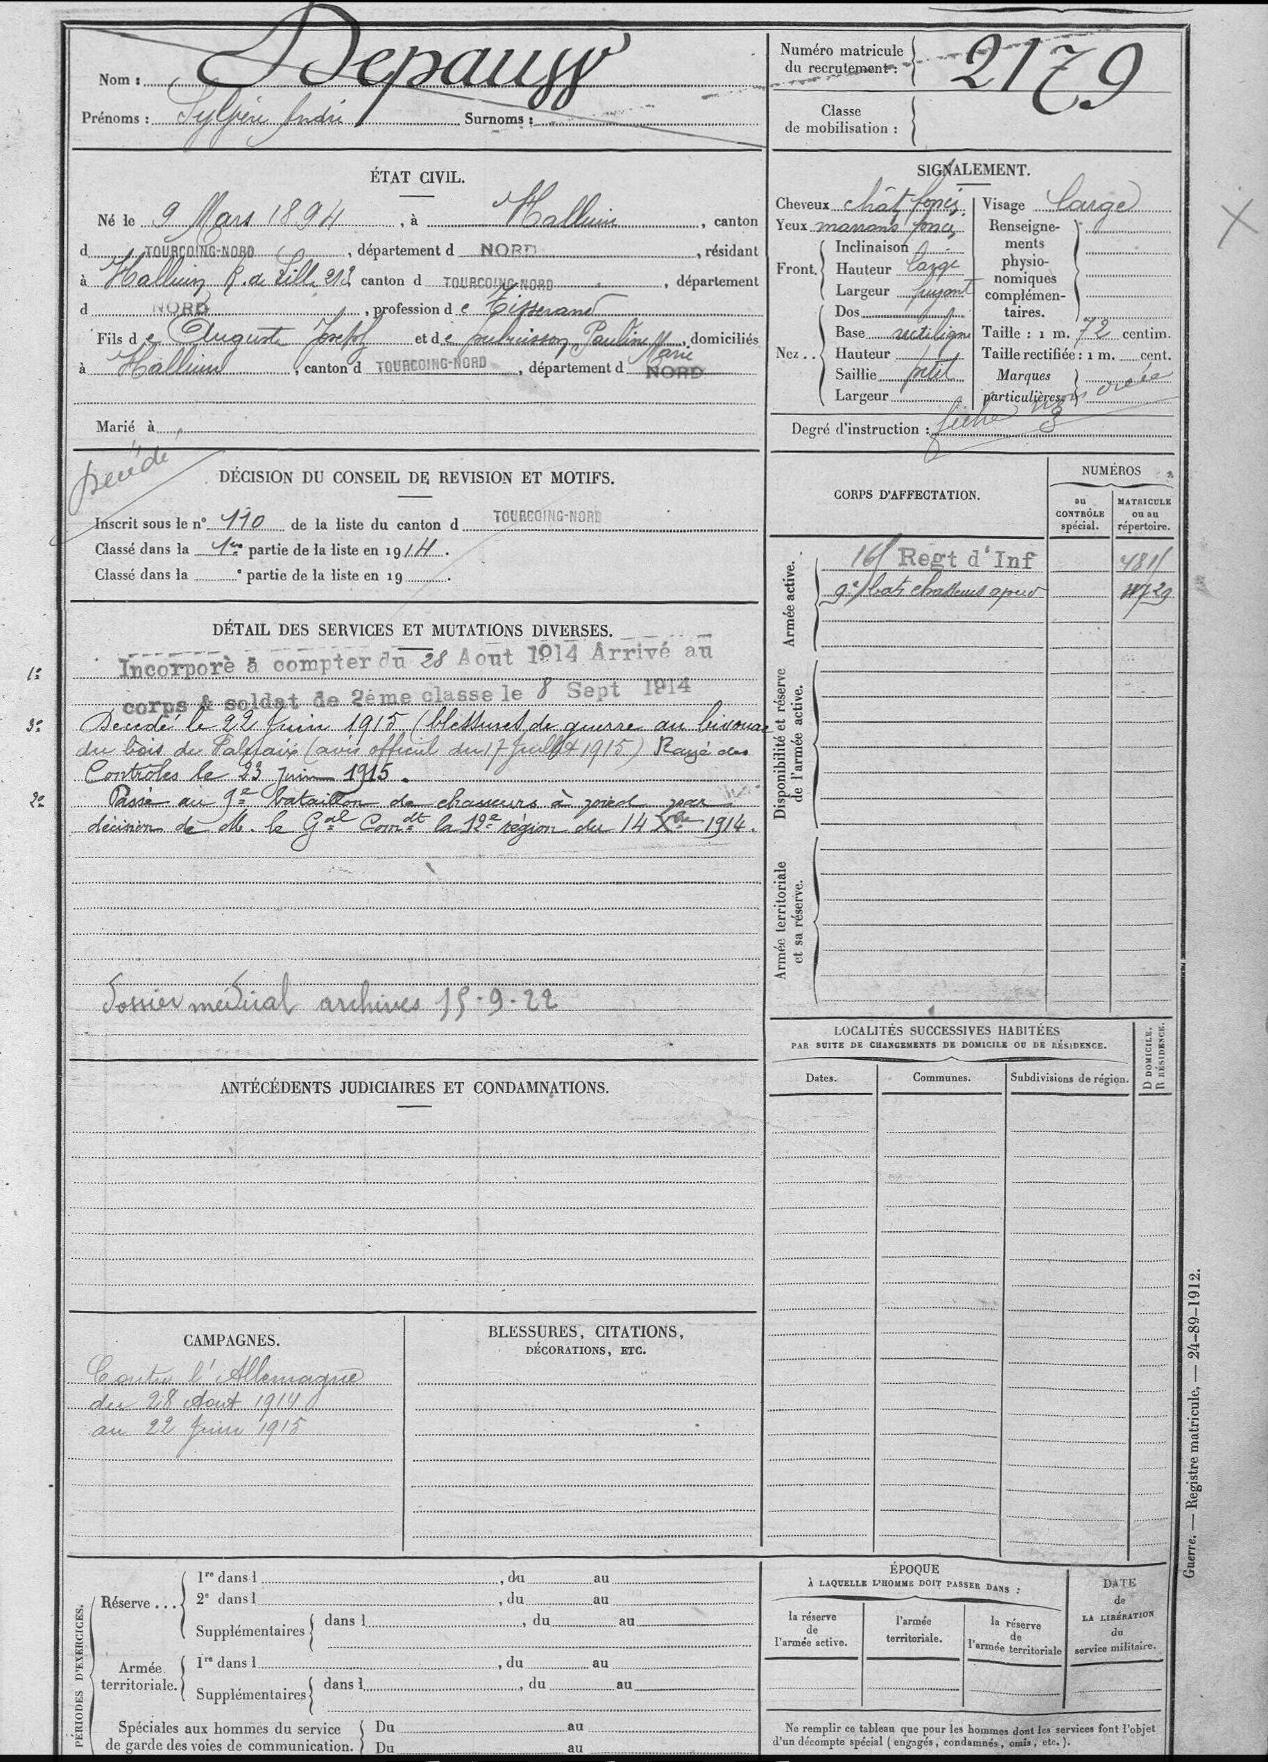 Nom : Depauw
Prénoms : Sylvère André Surnoms :
Numéro matricule du recrutement : 2179
Classe de mobilisation :
ÉTAT CIVIL.
Né le 9 Mars 1894, à Halluin, canton
d TOURCOING-NORD, département d NORD, résidant
à Halluin R. de Lille 212 canton d TOURCOING-NORD, département
d NORD, profession d e Tisserand
Fils d e Auguste Joseph et d e Pauline Marie, domiciliés
à Halluin, canton d TOURCOING-NORD, département d NORD
Marié à
SIGNALEMENT.
Cheveux chât foncés
Yeux marrons foncés
Front. Inclinaison
Hauteur large
Largeur fuyant
Nez .. Dos
Base rectiligne
Hauteur
Saillie petit
Largeur
Visage large
Renseigne-
ments
physio-
nomiques
complémen-
taires.
Taille : 1 m. 72 centim.
Taille rectifiée : 1 m. cent.
Marques
particulières
Degré d'instruction : 3
fiche non créée
Décédé
DÉCISION DU CONSEIL DE REVISION ET MOTIFS.
Inscrit sous le n° 110 de la liste du canton d TOURCOING-NORD
Classé dans la 1re partie de la liste en 1914.
Classé dans la e partie de la liste en 19 .
CORPS D'AFFECTATION.
NUMÉROS
au CONTRÔLE spécial.
MATRICULE ou au répertoire.
Armée active.
16e Regt d'Inf
9e bat. chasseurs à pied
Disponibilité et réserve de l'armée active.
Armée territoriale et sa réserve.
DÉTAIL DES SERVICES ET MUTATIONS DIVERSES.
1° Incorporé à compter du 28 Aout 1914 Arrivé au
corps & soldat de 2ème classe le 8 Sept 1914
3° Décédé le 22 Juin 1915 (blessures de guerre au bivouac
du bois de (avis officiel du 17 Juillet 1915) Rayé des
Contrôles le 23 Juin 1915.
2° Passé au 9e bataillon de chasseurs à pied par
décision de M. le Gal Comdt la 12e région du 14 Xbre 1914.
Dossier médical archives 15-9-22
LOCALITÉS SUCCESSIVES HABITÉES
PAR SUITE DE CHANGEMENTS DE DOMICILE OU DE RÉSIDENCE.
Dates. Communes. Subdivisions de région.
D DOMICILE.
R RÉSIDENCE.
ANTÉCÉDENTS JUDICIAIRES ET CONDAMNATIONS.
CAMPAGNES.
Contre l'Allemagne
du 28 Aout 1914
au 22 Juin 1915
BLESSURES, CITATIONS,
DÉCORATIONS, ETC.
Guerre. — Registre matricule, — 24-89-1912.
PÉRIODES D'EXERCICES.
Réserve ...
1re dans l , du au
2e dans l , du au
Supplémentaires dans l , du au
Armée territoriale.
1re dans l , du au
Supplémentaires dans l , du au
Spéciales aux hommes du service
de garde des voies de communication.
Du au
Du au
ÉPOQUE
À LAQUELLE L'HOMME DOIT PASSER DANS :
la réserve de l'armée active.
l'armée territoriale.
la réserve de l'armée territoriale
DATE de LA LIBÉRATION du service militaire.
Ne remplir ce tableau que pour les hommes dont les services font l'objet
d'un décompte spécial (engagés, condamnés, omis, etc.).